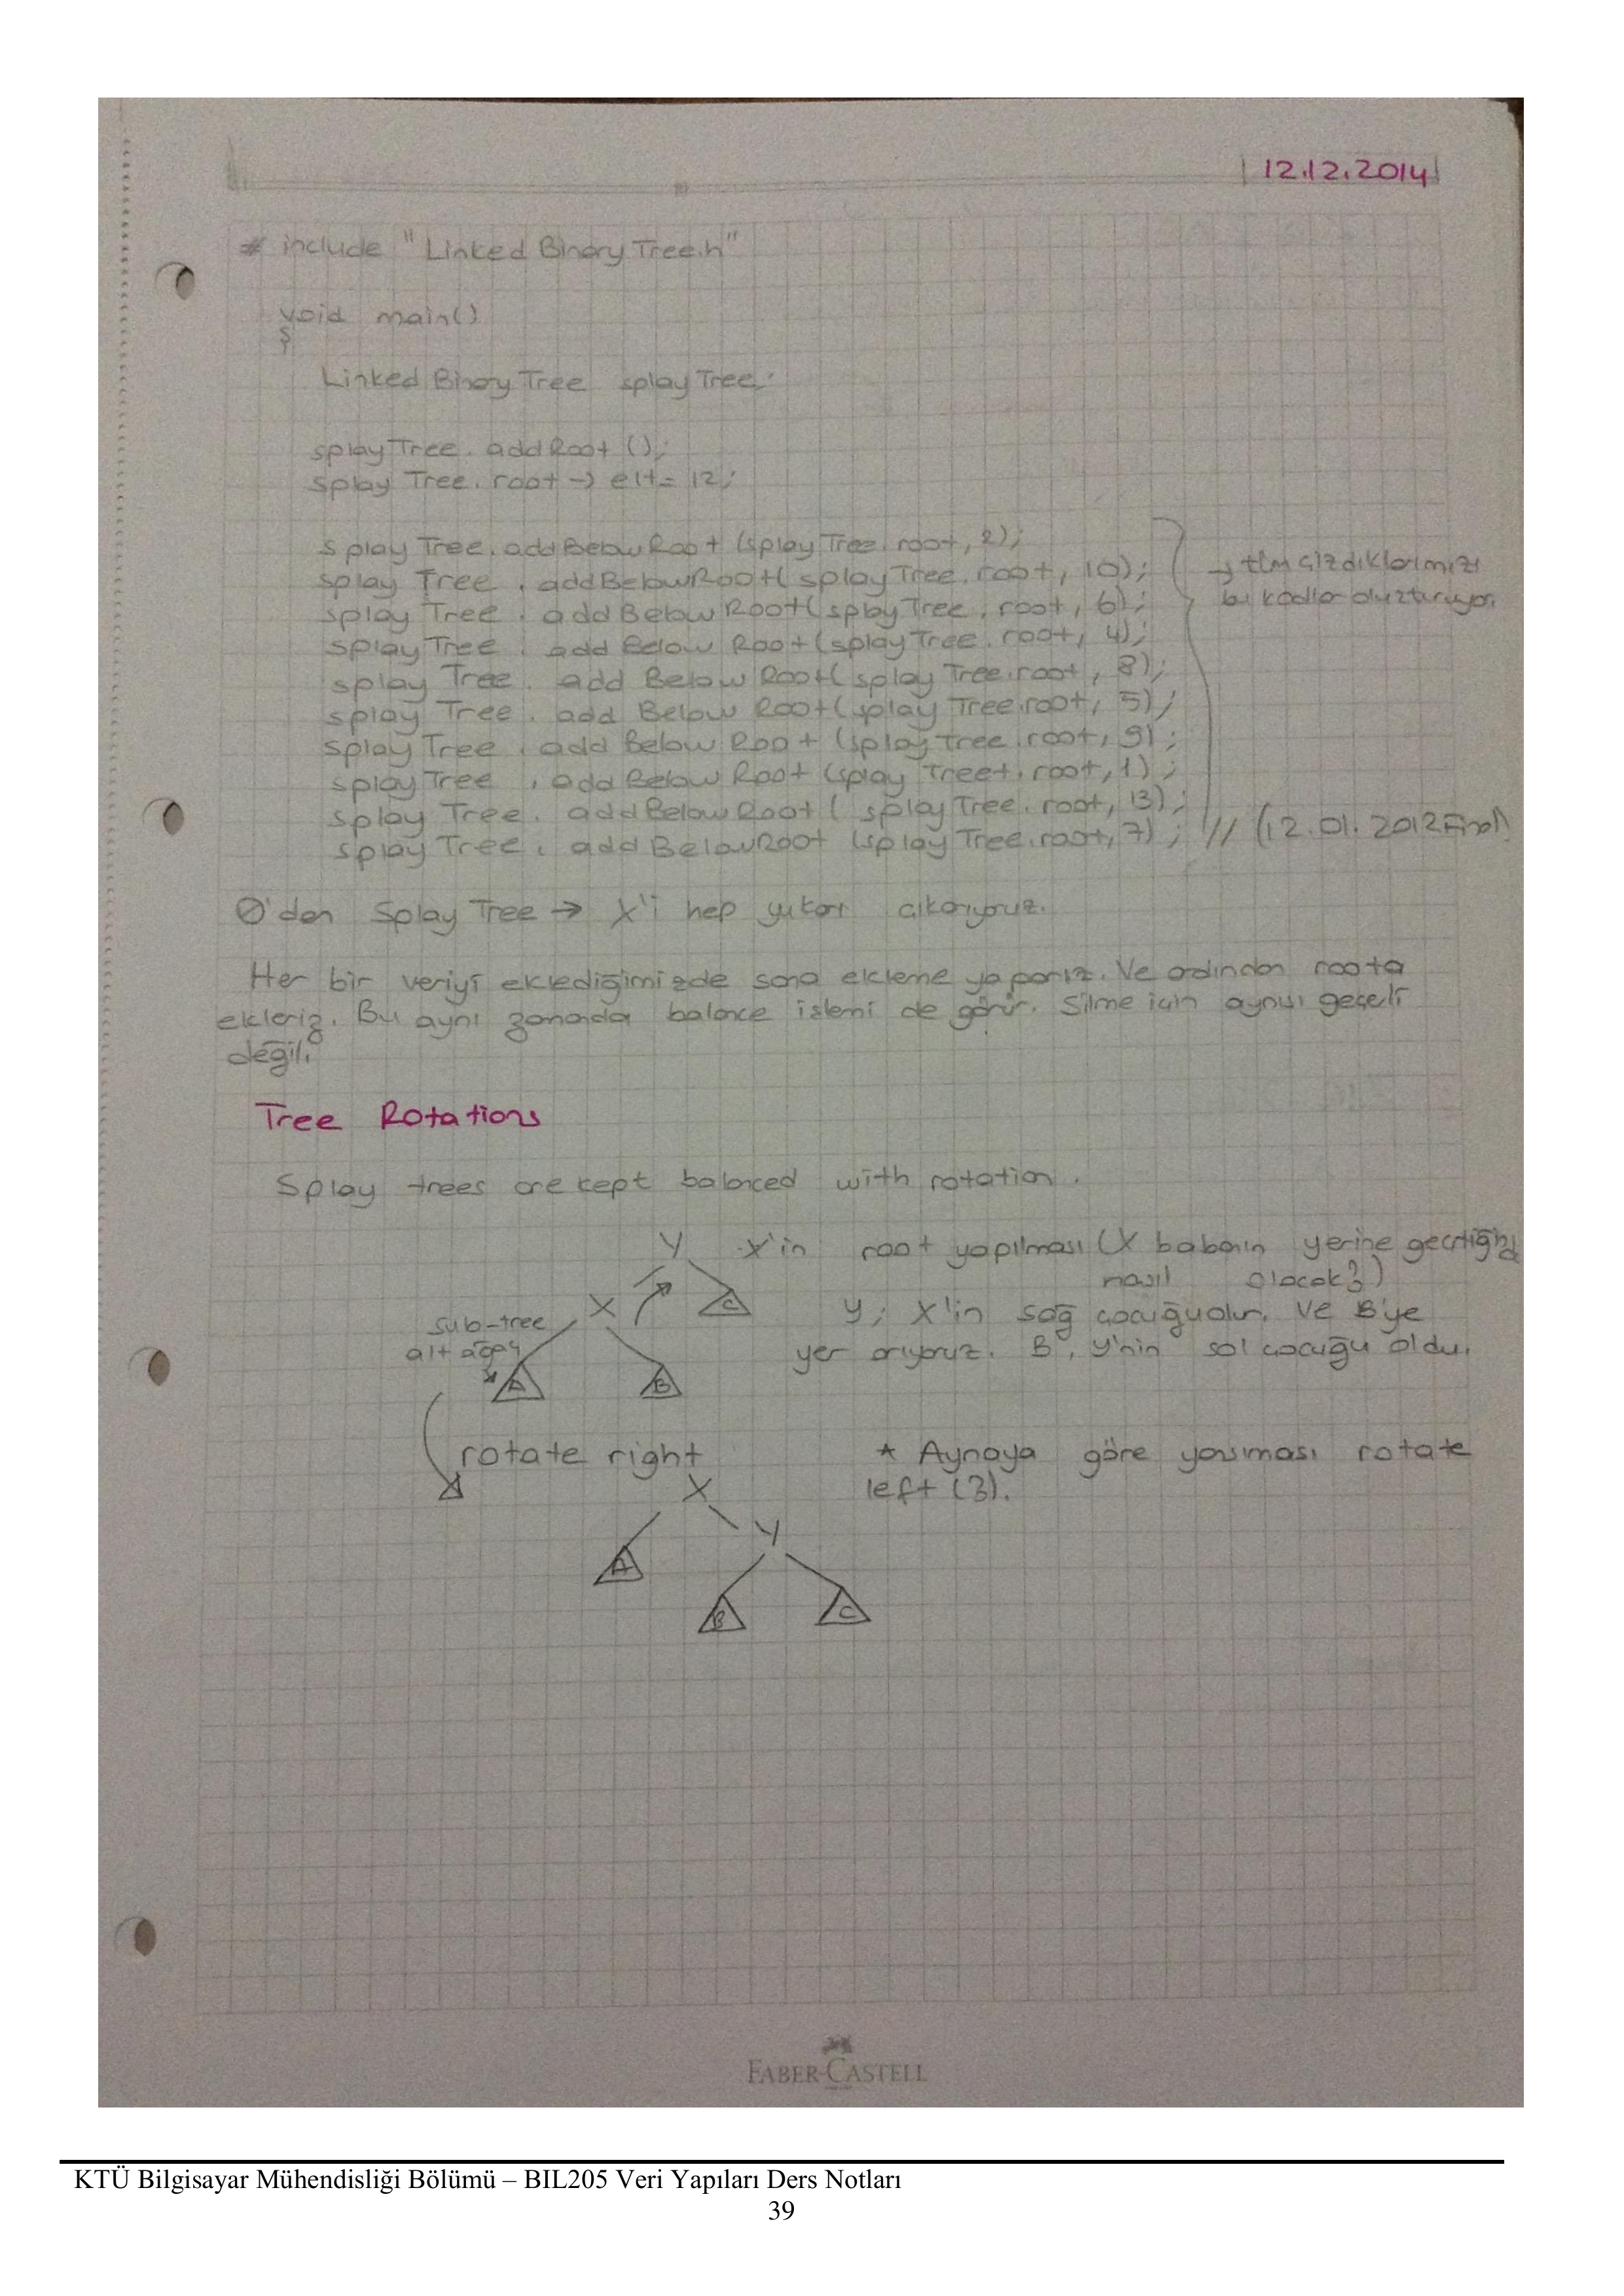 12.12.2014
# include "Linked Binary Tree.h"
void main()
{
Linked Binary Tree splay Tree;
splay Tree. add Root ();
splay Tree. root -> elt = 12;
splay Tree. add Below Root (splay Tree. root, 2);
splay Tree . addBelowRoot( splay Tree. root, 10); → tüm çizdiklerimizi
splay Tree . add Below Root(splay Tree . root, 6); bu kodlar oluşturuyor.
splay Tree . add Below Root (splay Tree. root, 4);
splay Tree . add Below Root( splay Tree.root, 8);
splay Tree . add Below Root(splay Tree.root, 5);
splay Tree . add Below Root (splay tree.root, 9);
splay Tree . add Below Root (splay Treet. root, 1);
splay Tree. add Below Root ( splay Tree. root, 13);
splay Tree. add BelowRoot (splay Tree.root, 7); // (12.01.2012 Final)
0'dan Splay Tree → X'i hep yukarı çıkarıyoruz.
Her bir veriyi eklediğimizde sona ekleme yaparız. Ve ardından roota
ekleriz. Bu aynı zamanda balance işlemi de görür. Silme için aynısı geçerli
değil.
Tree Rotations
Splay trees are kept balanced with rotation.
Y X'in root yapılması (X babanın yerine geçtiğinde
nasıl olacak?)
X C
Y; X'in sağ çocuğu olur. Ve B'ye
sub-tree
alt ağaç
yer arıyoruz. B, Y'nin sol çocuğu oldu.
A B
rotate right * Aynaya göre yansıması rotate
X left (3).
Y
A
B C
FABER-CASTELL
KTÜ Bilgisayar Mühendisliği Bölümü – BIL205 Veri Yapıları Ders Notları
39